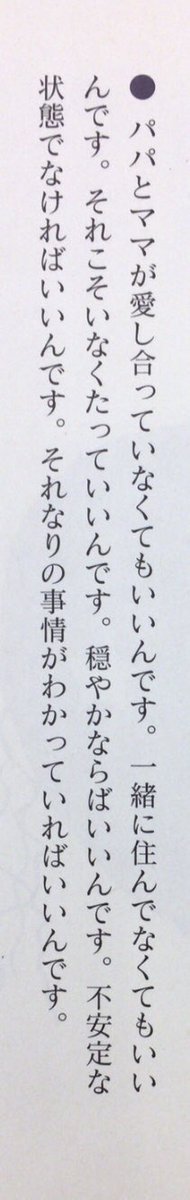 ● パパとママが愛し合っていなくてもいいんです。一緒に住んでなくてもいい
んです。それこそいなくたっていいんです。穏やかならばいいんです。不安定な
状態でなければいいんです。それなりの事情がわかっていればいいんです。